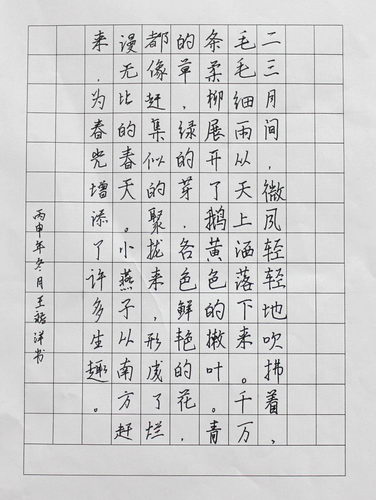 二三月间，微风轻轻地吹拂着，
毛毛细雨从天上洒落下来。千万
条柔柳展开了鹅黄色的嫩叶。青
的草，绿的芽，各色鲜艳的花，
都像赶集似的聚拢来，形成了烂
漫无比的春天。小燕子从南方赶
来，为春光增添了许多生趣。
丙申年冬月王洋书